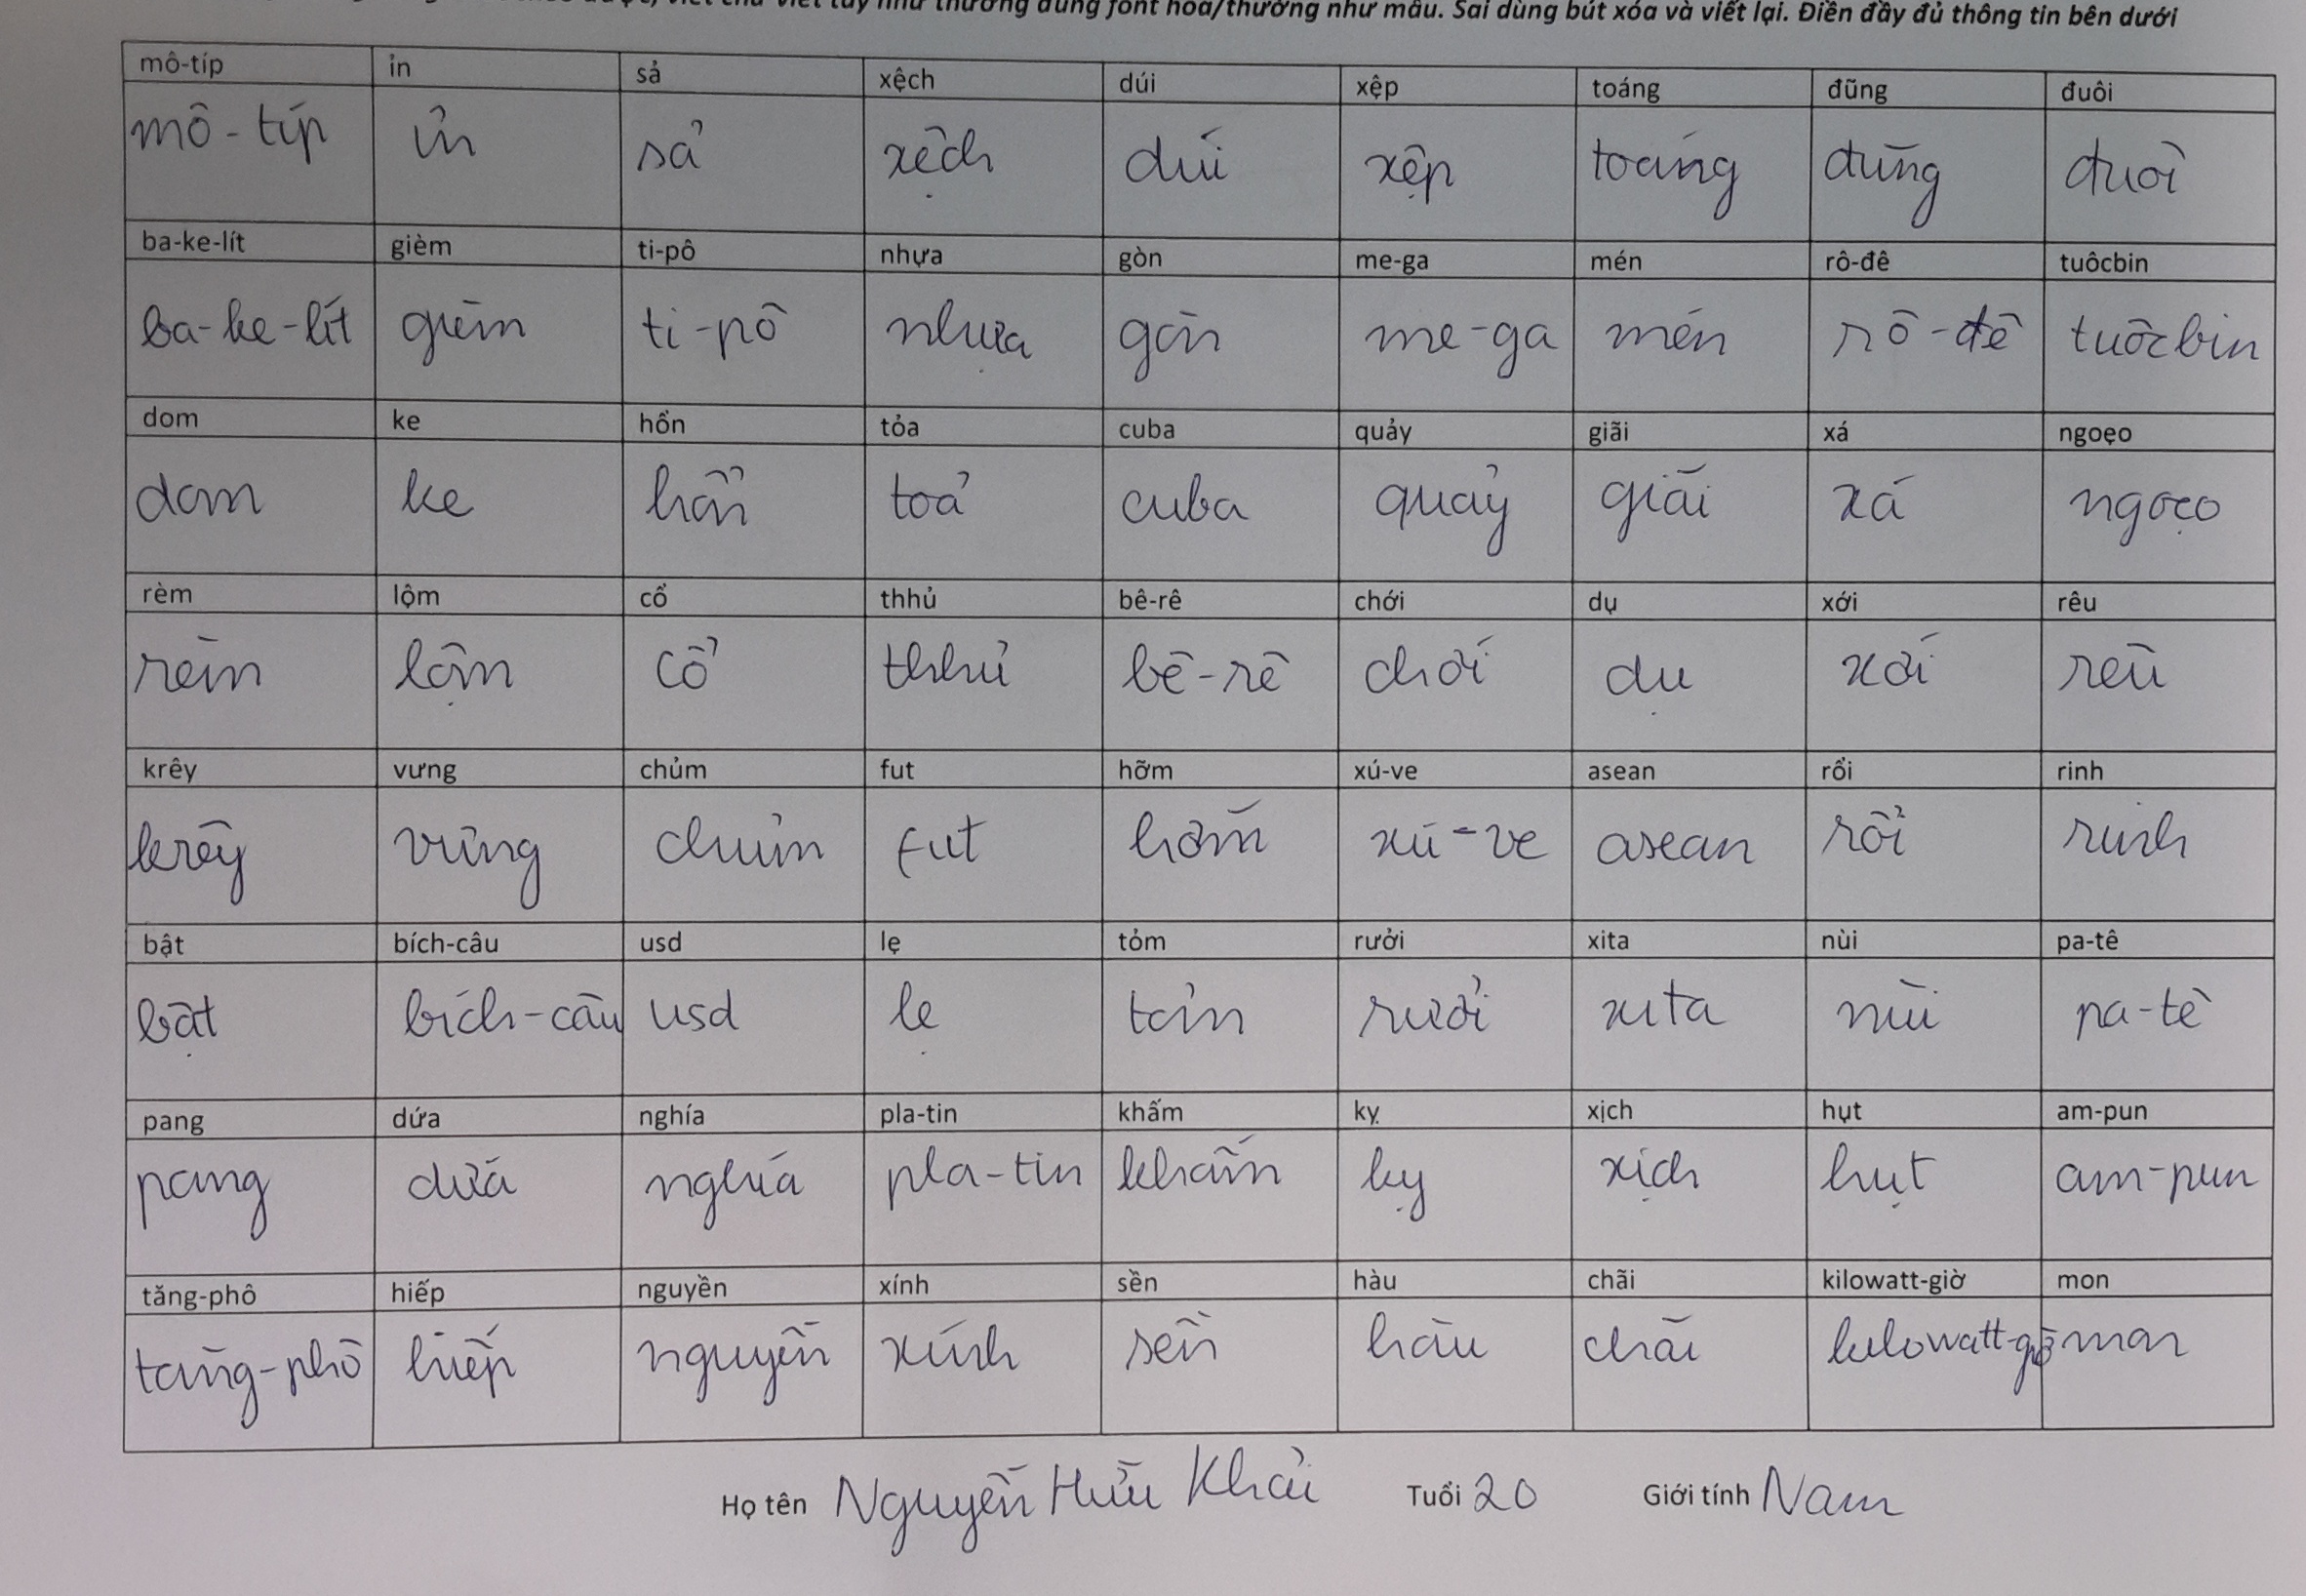 viết chữ viết tay như thường dùng font hoa/thường như mẫu. Sai dùng bút xóa và viết lại. Điền đầy đủ thông tin bên dưới
mô-típ ỉn sả xệch dúi xệp toáng đũng đuôi
mô-típ ỉn sả xệch dúi xệp toáng đũng đuôi
ba-ke-lít gièm ti-pô nhựa gòn me-ga mén rô-đê tuôcbin
ba-ke-lít gièm ti-pô nhựa gòn me-ga mén rô-đê tuôcbin
dom ke hổn tỏa cuba quảy giãi xá ngoẹo
dom ke hổn toả cuba quảy giãi xá ngoẹo
rèm lộm cổ thhủ bê-rê chới dụ xới rêu
rèm lộm cổ thhủ bê-rê chới dụ xới rêu
krêy vưng chủm fut hỡm xú-ve asean rổi rinh
krêy vưng chủm fut hỡm xú-ve asean rổi rinh
bật bích-câu usd lẹ tỏm rưởi xita nùi pa-tê
bật bích-câu usd lẹ tỏm rưởi xita nùi pa-tê
pang dứa nghía pla-tin khấm kỵ xịch hụt am-pun
pang dứa nghía pla-tin khấm kỵ xịch hụt am-pun
tăng-phô hiếp nguyền xính sền hàu chãi kilowatt-giờ mon
tăng-phô hiếp nguyền xính sền hàu chãi kilowatt-giờ mon
Họ tên Nguyễn Hữu Khải Tuổi 20 Giới tính Nam